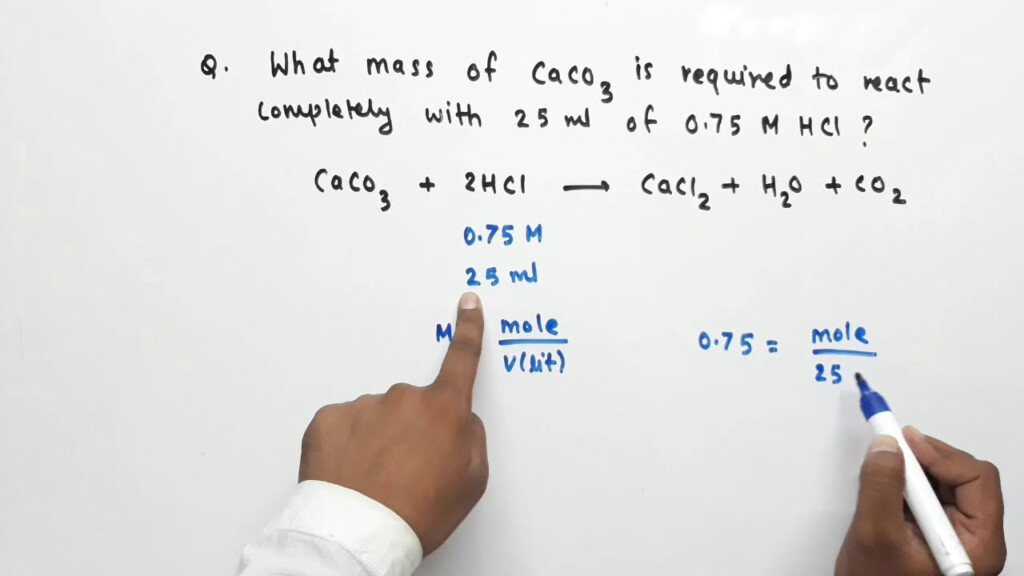 Q. What mass of CaCO₃ is required to react
completely with 25 ml of 0.75 M HCl ?
CaCO₃ + 2HCl ⟶ CaCl₂ + H₂O + CO₂
0.75 M
25 ml
M mole / V(lit)
0.75 = mole / 25